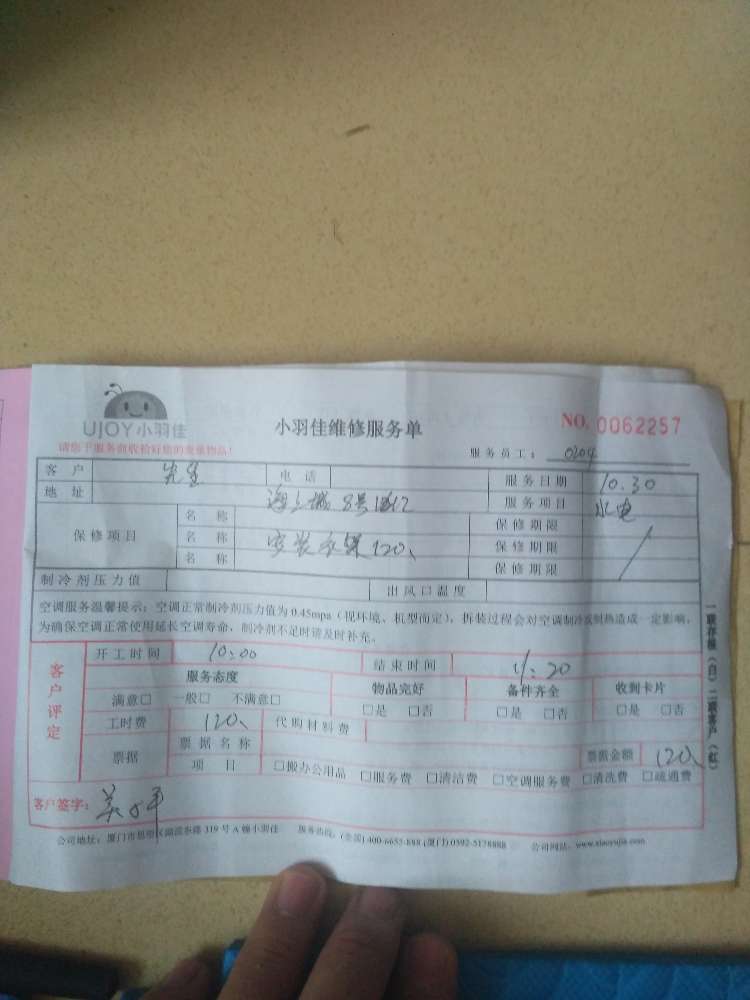 UJOY小羽佳
小羽佳维修服务单
NO. 0062257
服务员工: 0204
客户 先生 电话 服务日期 10.30
地址 服务项目 水电
保修项目 名称 保修期限
名称 安装 120 保修期限
名称 保修期限
制冷剂压力值 出风口温度
空调服务温馨提示: 空调正常制冷剂压力值为0.45mpa (视环境、机型而定), 拆装过程会对空调制冷或制热造成一定影响,
为确保空调正常使用延长空调寿命, 制冷剂不足时请及时补充。
客户评定
开工时间 10:00 结束时间 11:20
服务态度 物品完好 备件齐全 收到卡片
满意□ 一般□ 不满意□ □是 □否 □是 □否 □是 □否
工时费 120 代购材料费
票据 票据名称 票据金额 120
项目 □搬办公用品 □服务费 □清洁费 □空调服务费 □清洗费 □疏通费
客户签字:
公司地址: 厦门市思明区湖滨东路 319 号 A 幢小羽佳 服务热线: (全国) 400-6655-888 (厦门) 0592-5178888 公司网站: www.xiaoyujia.com
一联存根 (白) 二联客户 (红)